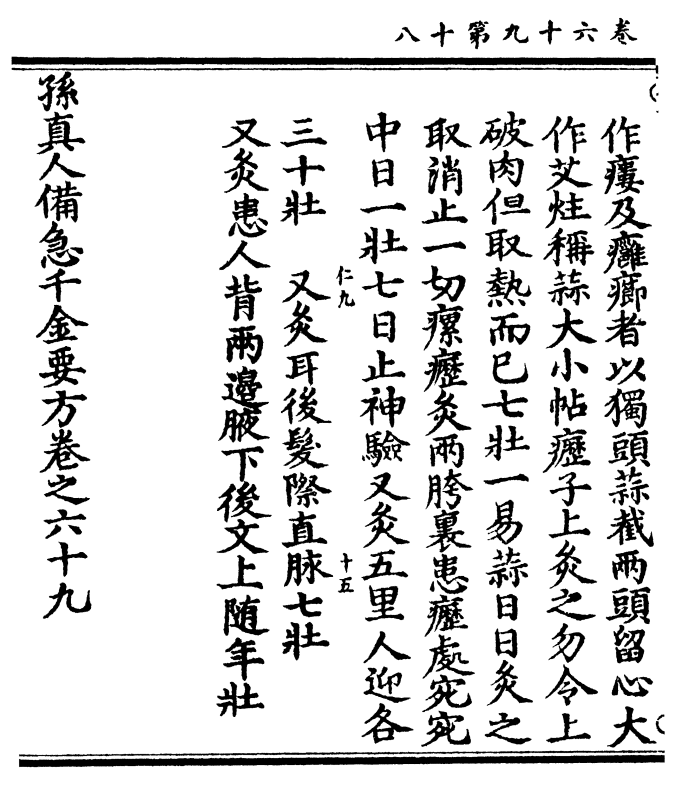 卷六十九第十八
作瘻及癰癤者以獨頭蒜截兩頭留心大
作艾炷稱蒜大小帖癧子上灸之勿令上
破肉但取熱而已七壯一易蒜日日灸之
取消止一切瘰癧灸兩胯裏患癧處宛宛
中日一壯七日止神驗又灸五里人迎各
三十壯 又灸耳後髮際直脉七壯
仁九 十五
又灸患人背兩邊腋下後文上随年壯
孫真人備急千金要方卷之六十九